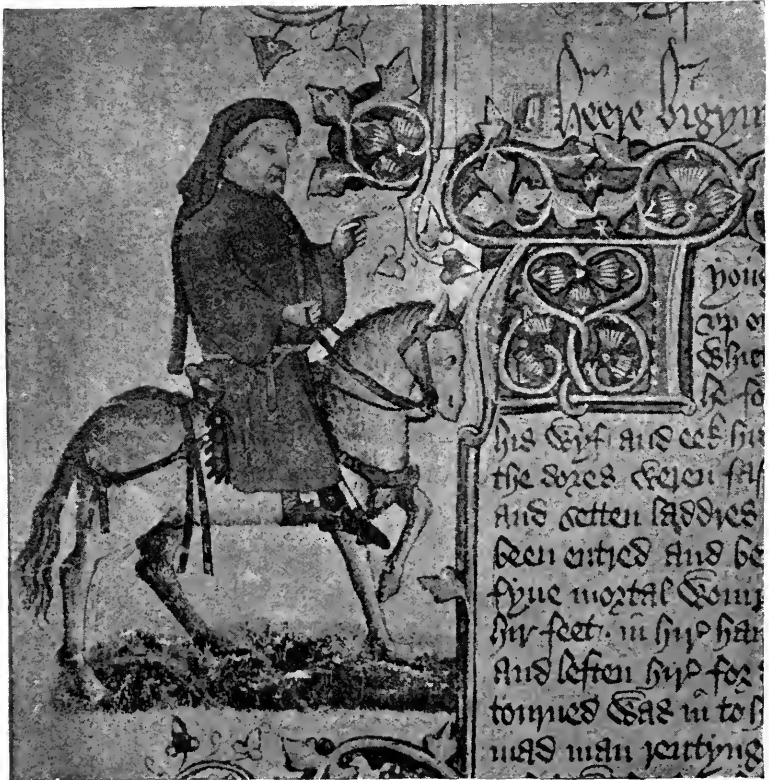 heere bigyn
yong
vp o
Which
he fo
his wyf and eek hi
the dores weren fas
and setten laddres
been entred and be
fyue mortal woun
hir feet in hir han
and leften hir for
tourned was in to h
mad man rentyng